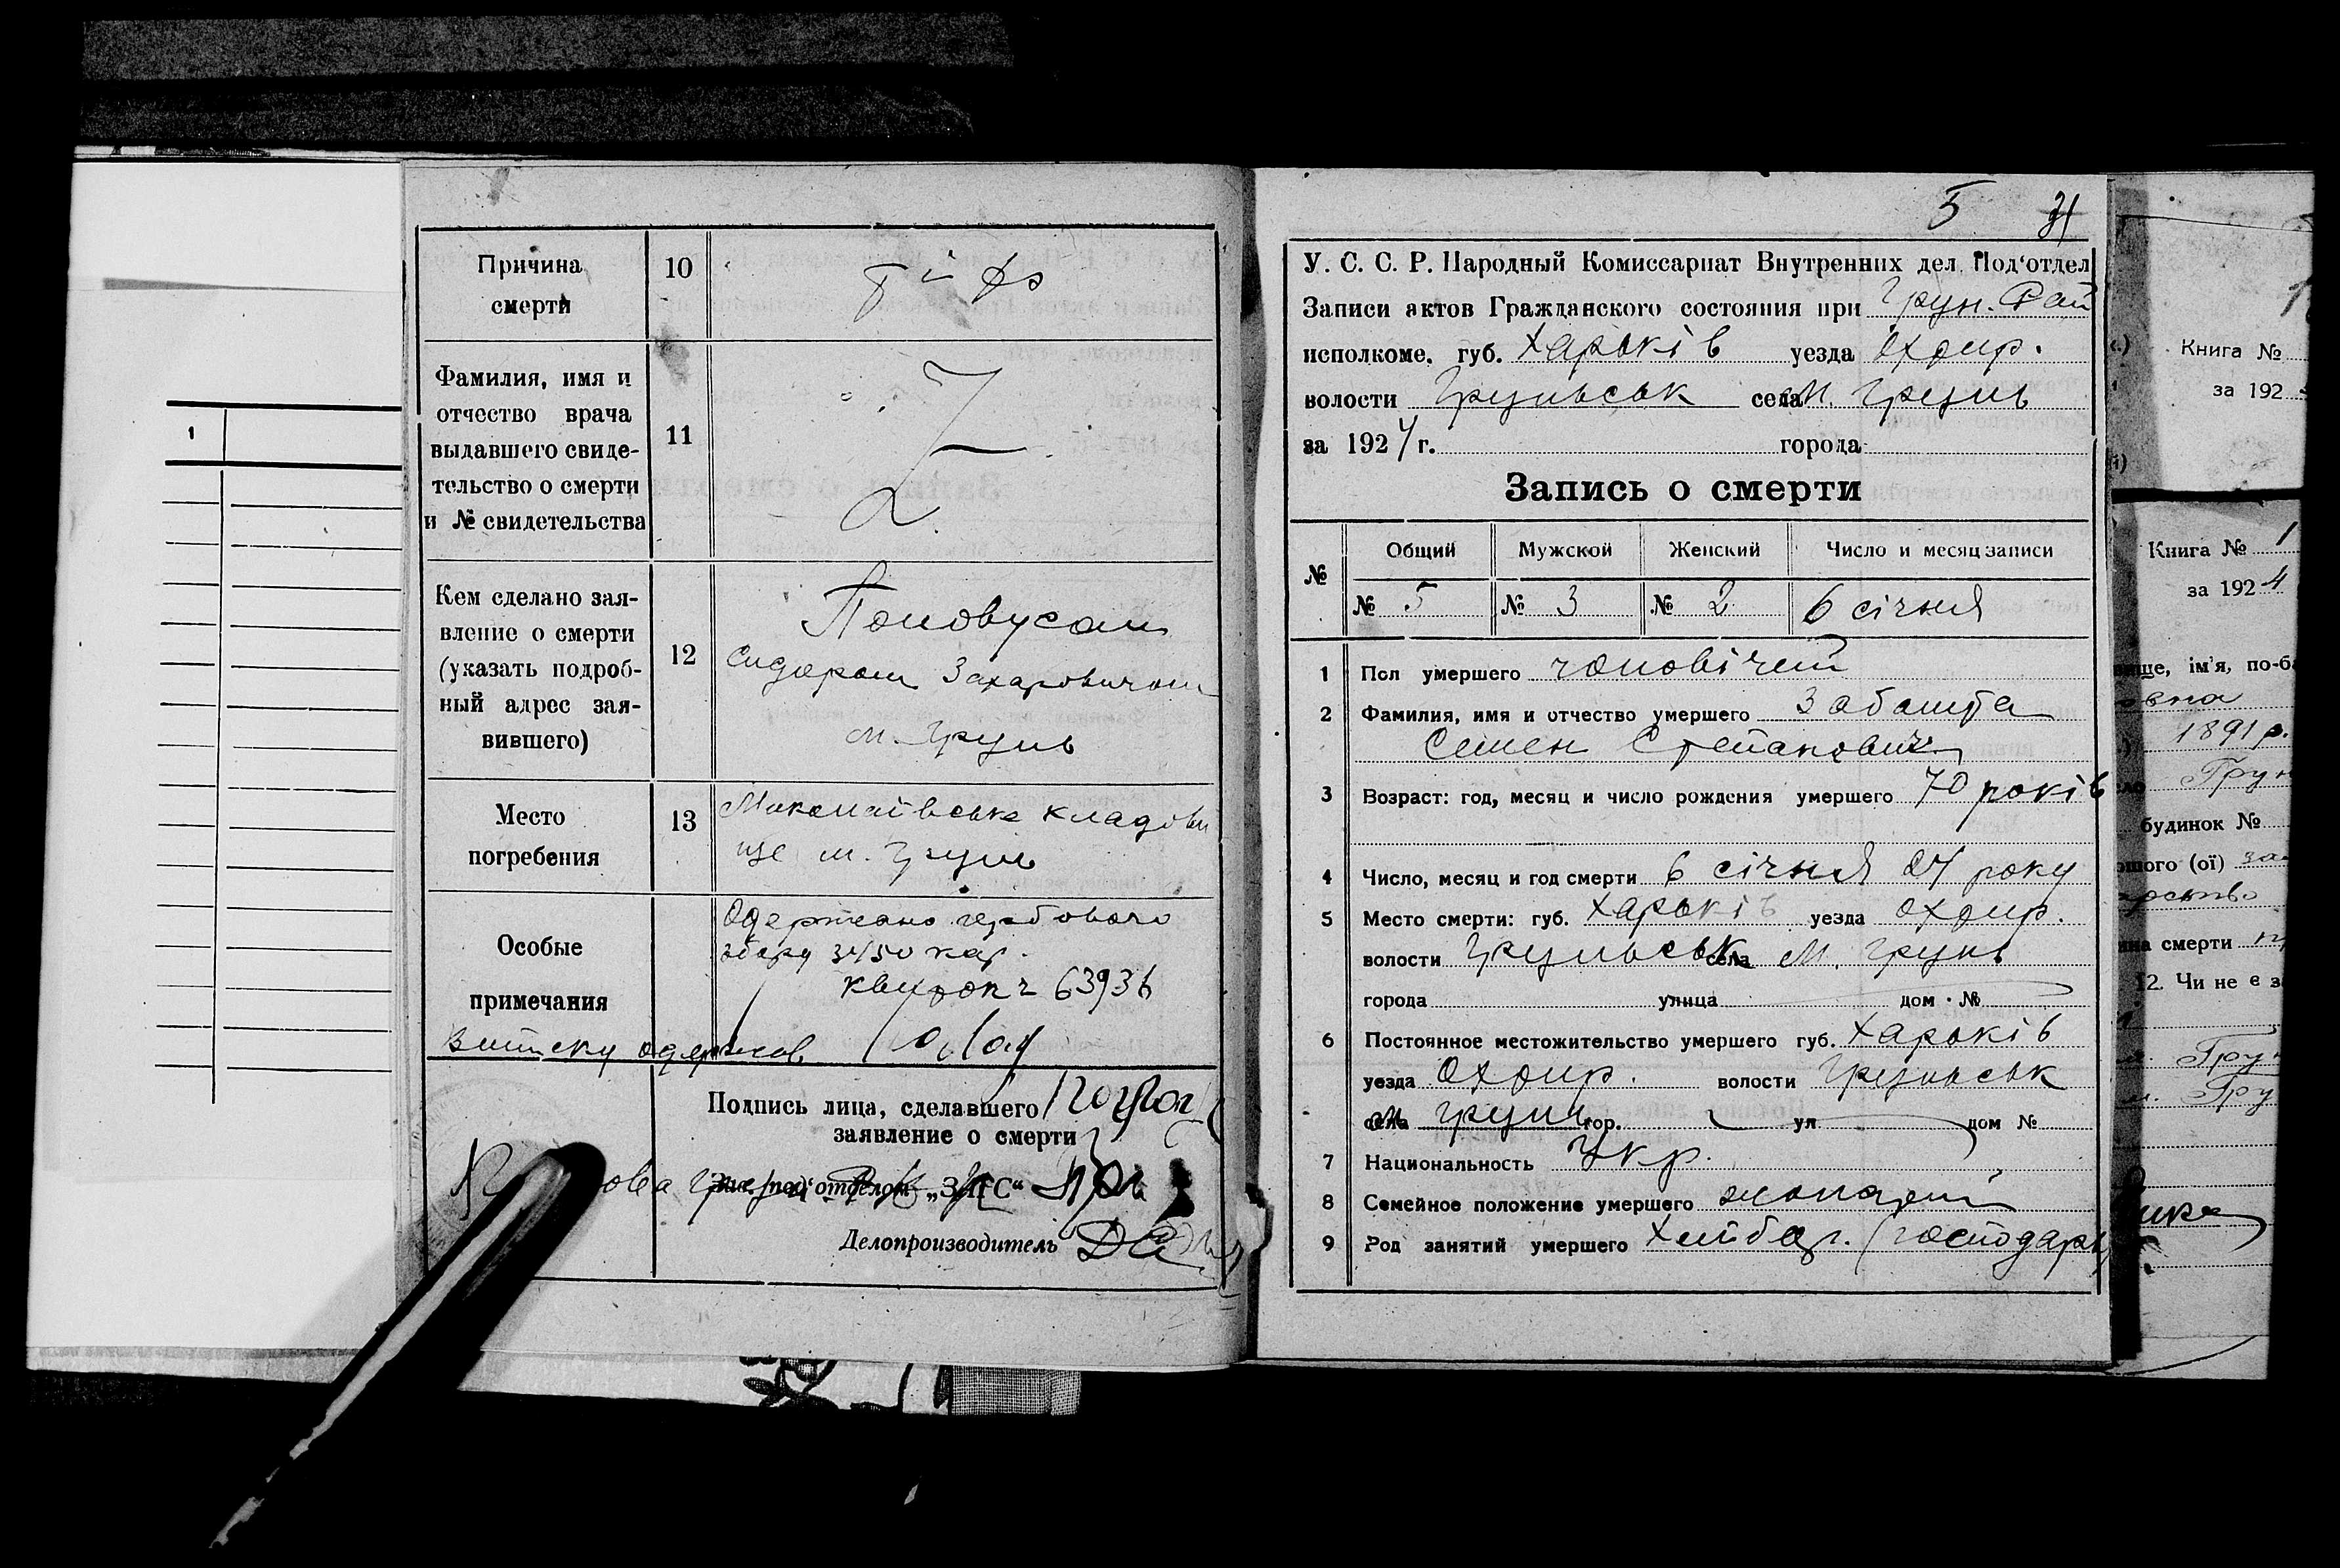 1
Причина
смерти
10
Тіф
Фамилия, имя и
отчество врача
выдавшего свиде-
тельство о смерти
и № свидетельства
11
Кем сделано зая-
вление о смерти
(указать подроб-
ный адрес зая-
вившего)
12
Сидором Захаровичом
м. Грунь
Место
погребения
13
Миколаївське кладови
ще м. Грунь
Особые
примечания
Одержано гербового
збору 3450 кар.
63936
Виписку одержав
Подпись лица, сделавшего
заявление о смерти
Зав. под'отделом „ЗАГС“
Делопроизводитель
5 31
У. С. С. Р. Народный Комиссариат Внутренних дел. Под'отдел
Записи актов Гражданского состояния при Грун. Рай
исполкоме, губ. Харьків уезда Охтир.
волости Грунськ села м. Грунь
за 1924 г. города
Запись о смерти
№ Общий Мужской Женский Число и месяц записи
№ 5 № 3 № 2 6 січня
1 Пол умершего чоловічий
2 Фамилия, имя и отчество умершего Забашта
Семен Степанович
3 Возраст: год, месяц и число рождения умершего 70 років
4 Число, месяц и год смерти 6 січня 24 року
5 Место смерти: губ. Харьків уезда Охтир.
волости Грунськ села м. Грунь
города улица дом № 
6 Постоянное местожительство умершего губ. Харьків
уезда Охтир. волости Грунськ
села м. Грунь гор. ул дом №
7 Национальность Укр.
8 Семейное положение умершего жонатий
9 Род занятий умершего Хлібор. (господарь)
Книга №
за 192
Книга № 1
за 1924
ище, ім'я, по-ба
овна
1891 р.
Грун
будинок №
ршого (ої)
ина смерти
12. Чи не є з
м. Грун
м. Гру